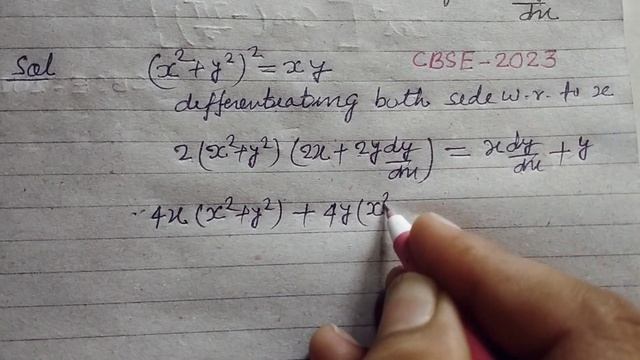 dx
Sol (x²+y²)² = xy CBSE-2023
differentiating both side w.r. to x
2(x²+y²)(2x+2y dy/dx) = x dy/dx + y
4x(x²+y²) + 4y(x²